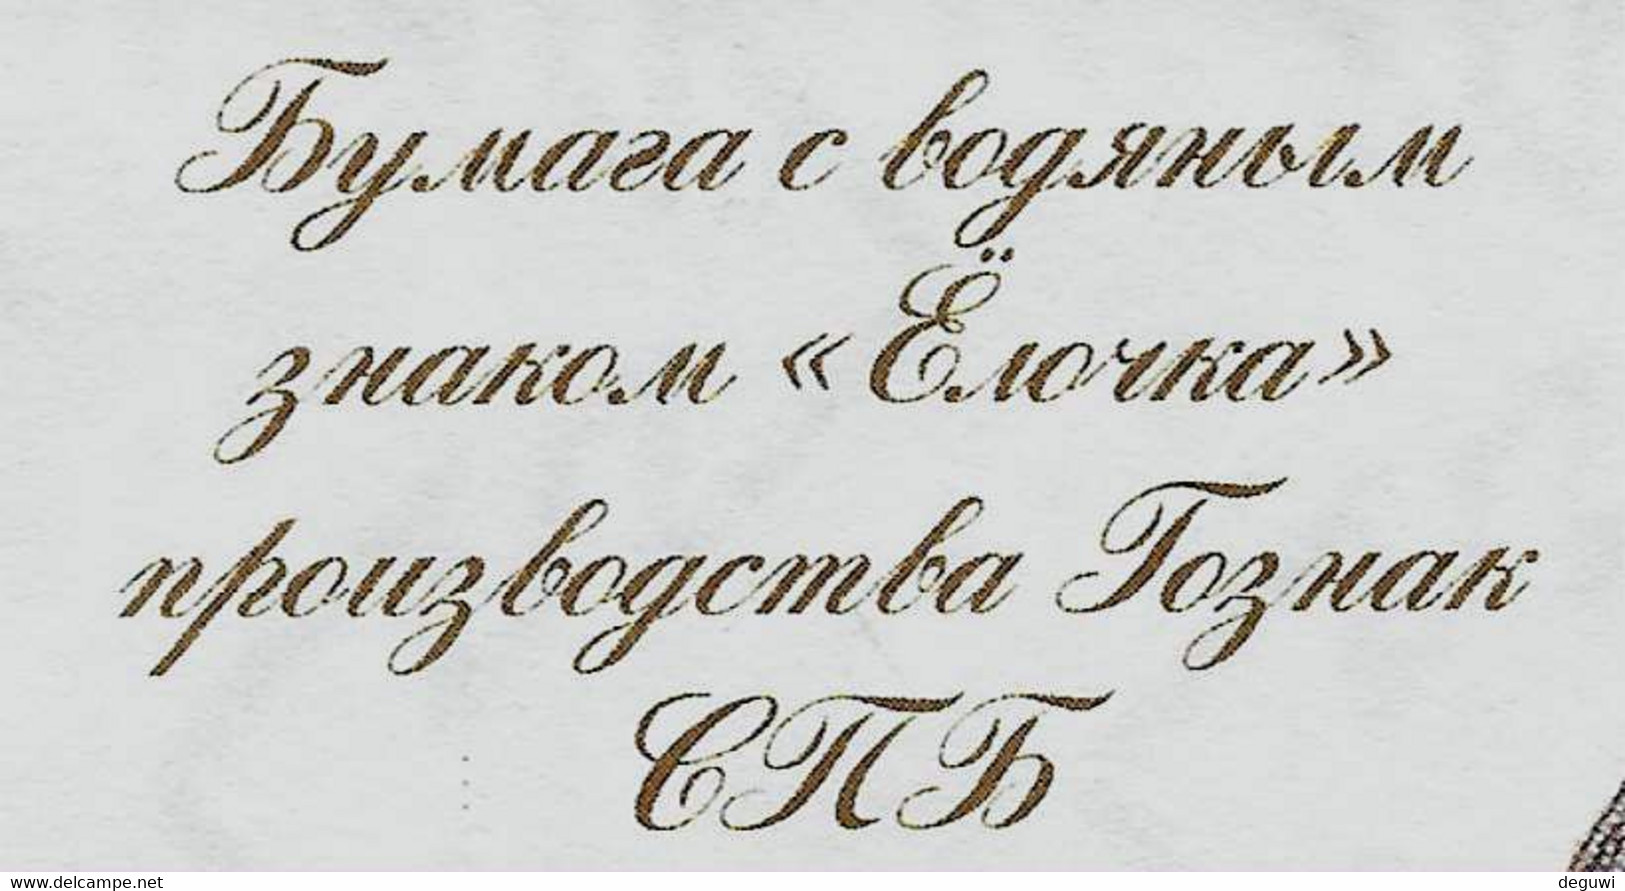 Бумага с водяным
знаком «Ёлочка»
производства Гознак
СПБ
www.delcampe.net
deguwi